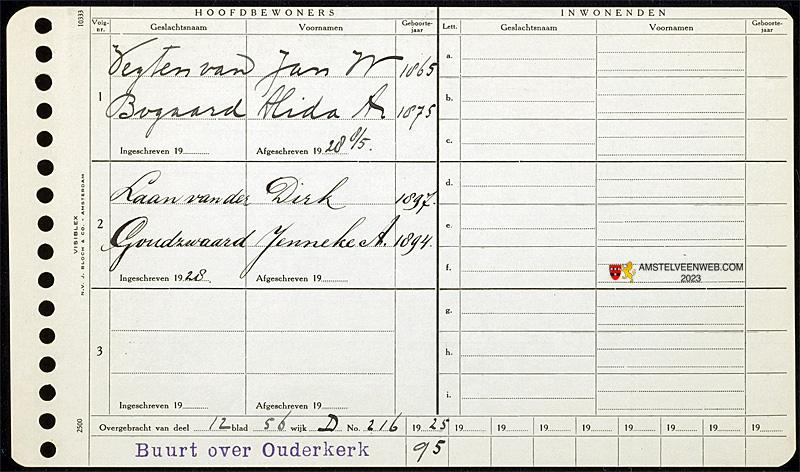 HOOFDBEWONERS INWONENDEN
Volg-nr. Geslachtsnaam Voornamen Geboorte-jaar Lett. Geslachtsnaam Voornamen Geboorte-jaar
10333
1
Vegten van Jan W 1865
Bogaard Alida A. 1875
Ingeschreven 19 Afgeschreven 19 28 8/5.
a.
b.
c.
2
Laan van der Dirk 1897.
Goudzwaard Jenneke A. 1894.
Ingeschreven 19 28. Afgeschreven 19
d.
e.
f.
AMSTELVEENWEB.COM
2023
VISIBLEX
N.V. J. BLOCH & CO. - AMSTERDAM
3
Ingeschreven 19 Afgeschreven 19
g.
h.
i.
2500
Overgebracht van deel 12 blad 56 wijk D No. 216 19 25 19 19 19 19 19 19 19 19
Buurt over Ouderkerk 95